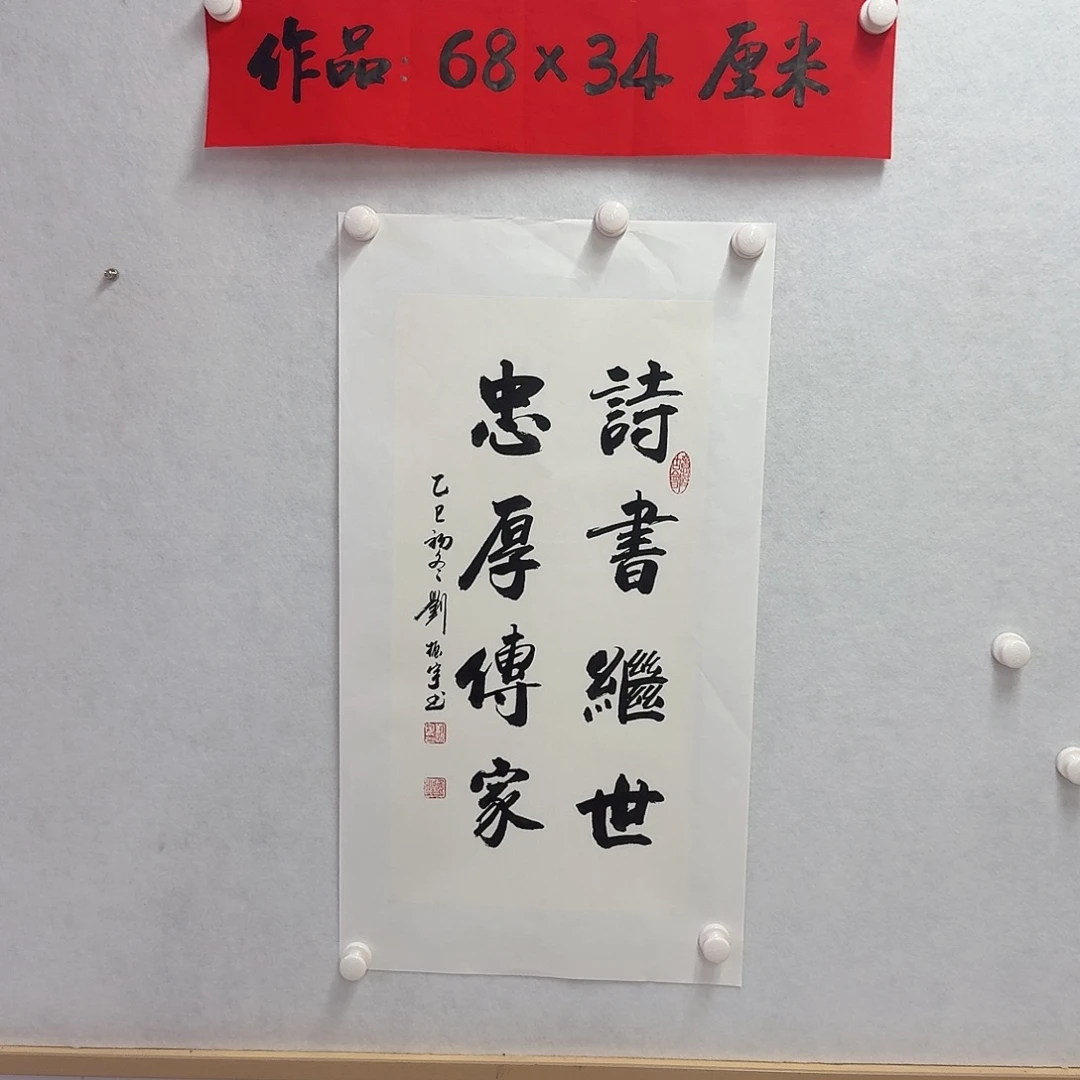 作品: 68×34 厘米
詩書繼世
忠厚傳家
乙巳初冬劉振宇书